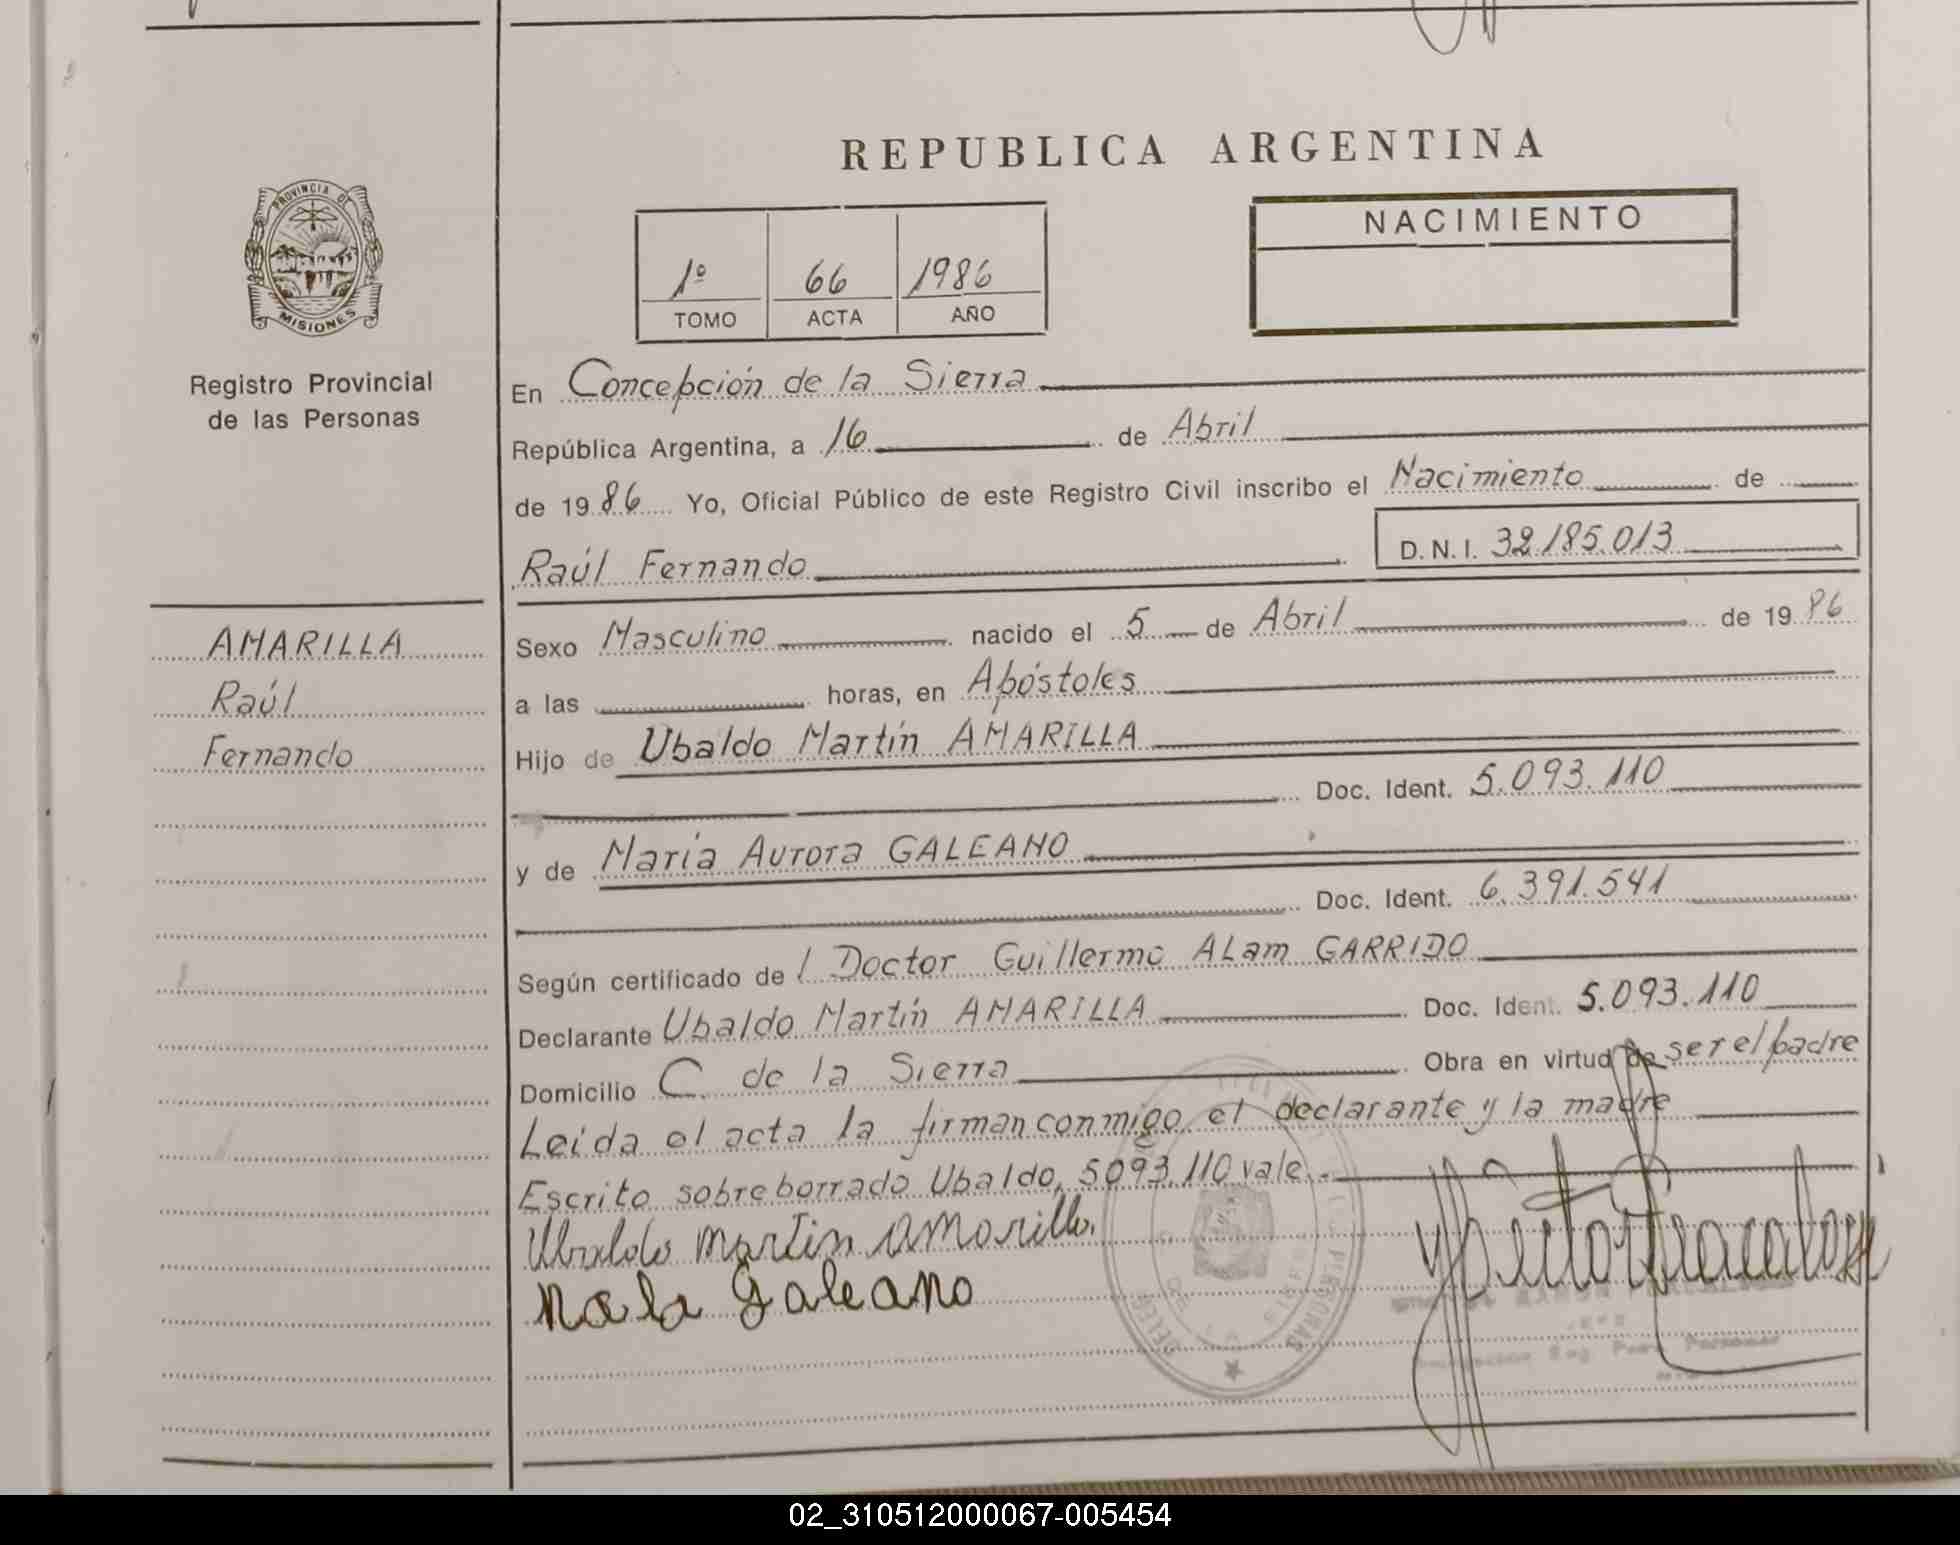 REPUBLICA ARGENTINA
PROVINCIA DE
MISIONES
Registro Provincial
de las Personas
1º 66 1986
TOMO ACTA AÑO
NACIMIENTO
En Concepción de la Sierra
República Argentina, a 16 de Abril
de 1986 Yo, Oficial Público de este Registro Civil inscribo el Nacimiento de
Raúl Fernando D.N.I. 32.185.013
AMARILLA
Raúl
Fernando
Sexo Masculino nacido el 5 de Abril de 1986
a las horas, en Apóstoles
Hijo de Ubaldo Martín AMARILLA
Doc. Ident. 5.093.110
y de María Aurora GALEANO
Doc. Ident. 6.391.541
Según certificado del Doctor Guillermo ALam GARRIDO
Declarante Ubaldo Martín AMARILLA Doc. Ident. 5.093.110
Domicilio C. de la Sierra Obra en virtud de ser el padre
Leida el acta la firman conmigo el declarante y la madre
Escrito sobre borrado Ubaldo, 5093.110 vale.-
Ubaldo Martin Amarilla.
Galeano
02_310512000067-005454